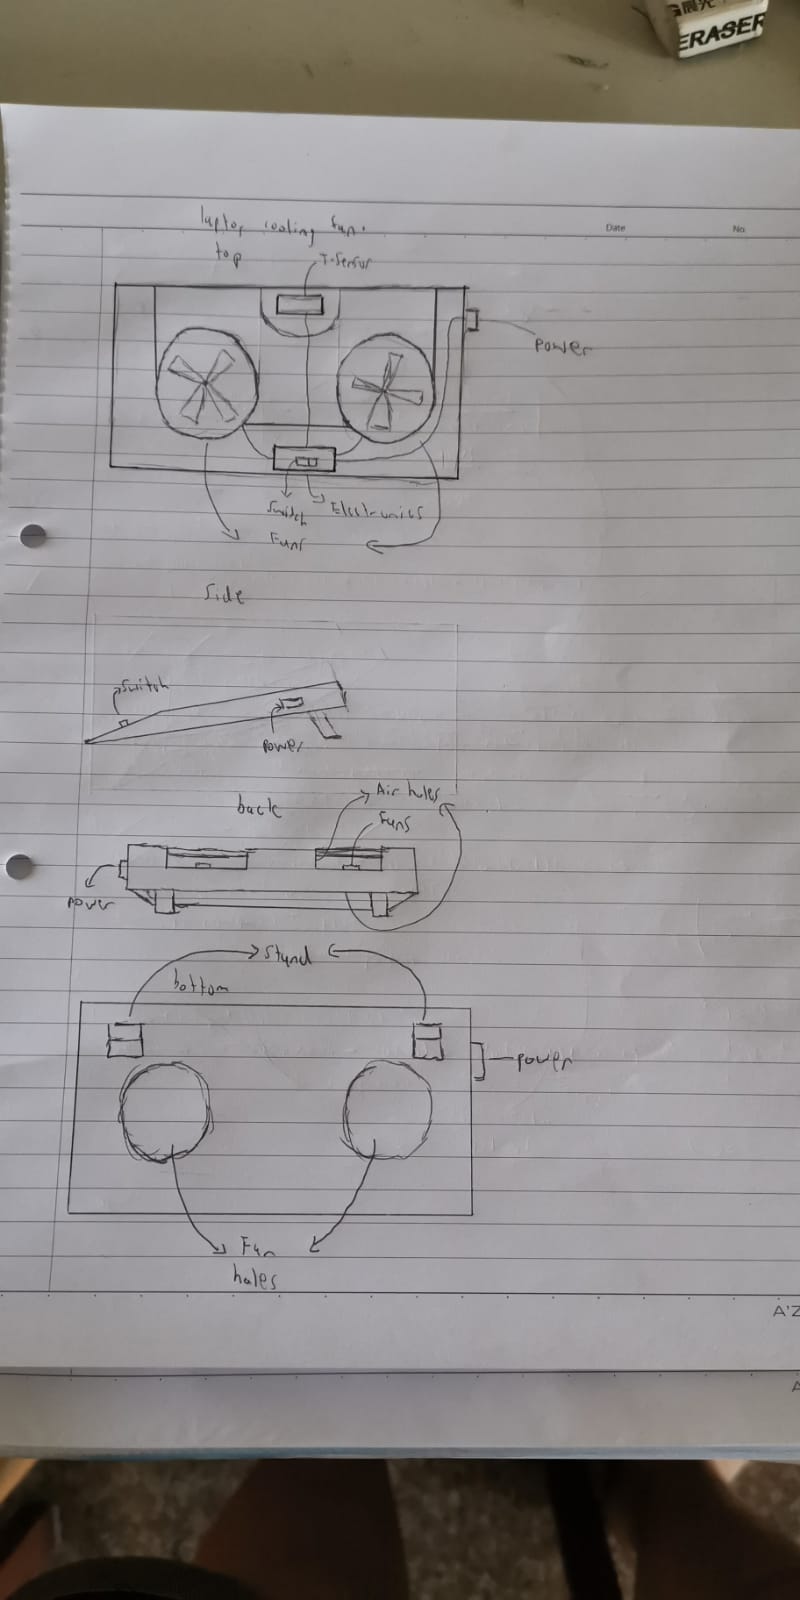 晨光
ERASER
Date No.
laptop cooling fan.
top
T-Sensor
power
Switch Electronics
Fans
Side
Switch
power
back
Air holes
Fans
power
Stand
bottom
power
Fan
holes
A'Z
A